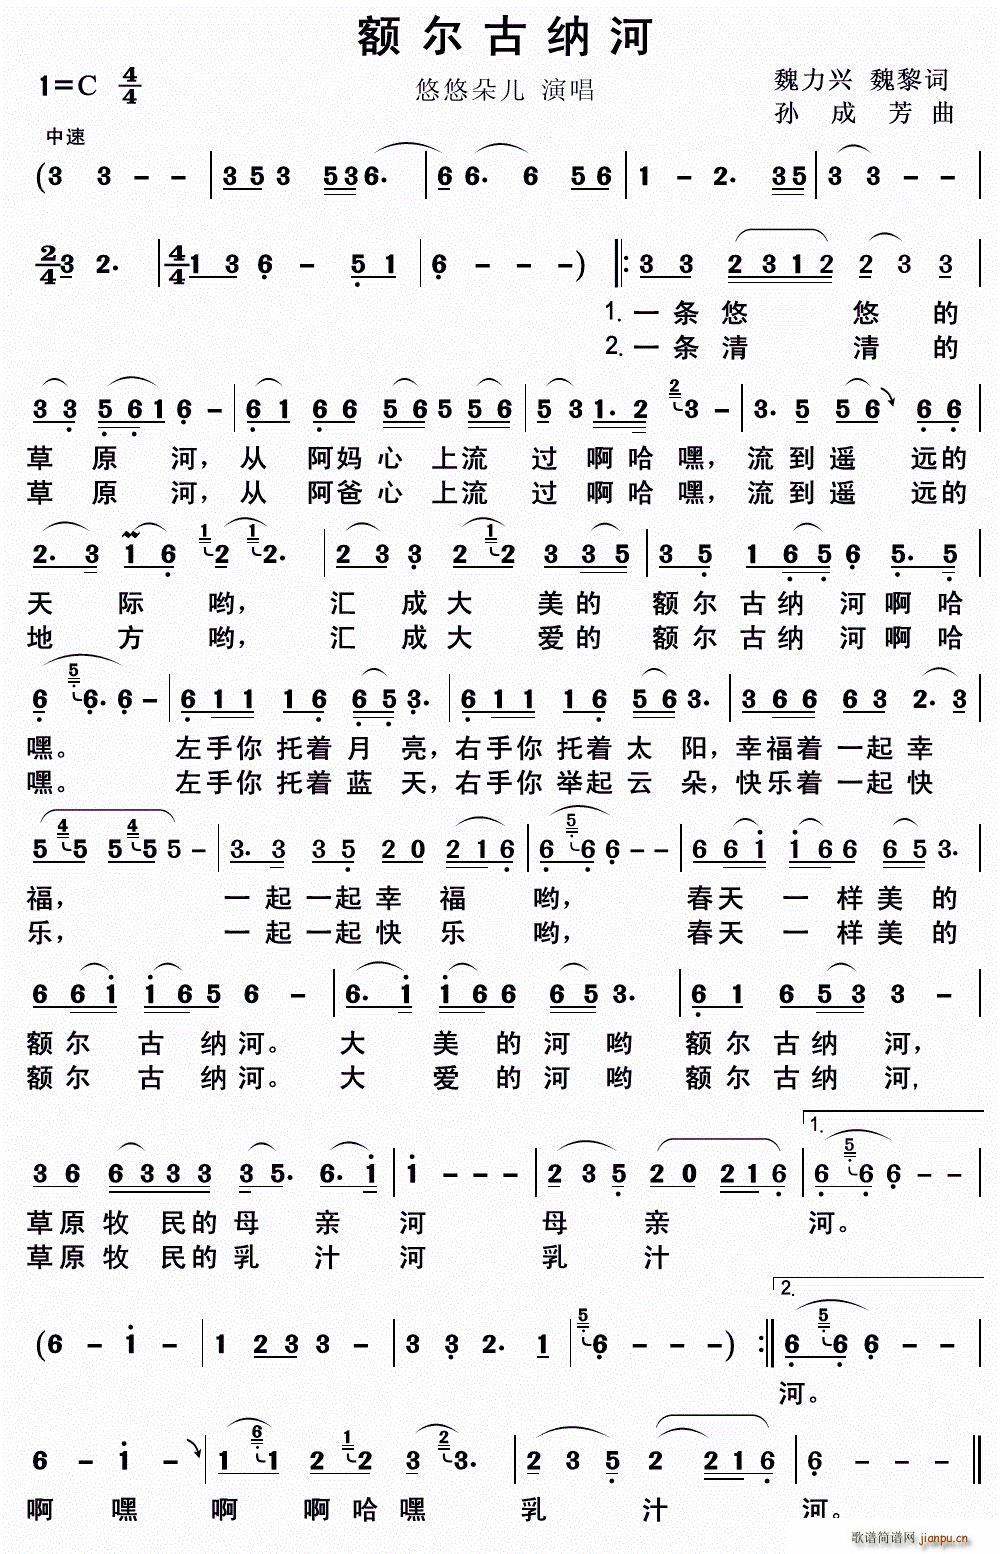 额尔古纳河
1=C 4/4
悠悠朵儿 演唱
魏力兴 魏黎词
孙 成 芳 曲
中速
(3 3 - - | 3 5 3 5 3 6. | 6 6. 6 5 6 | 1 - 2. 3 5 | 3 3 - - |
2/4 3 2. | 4/4 1 3 6 - 5 1 | 6 - - -) |: 3 3 2 3 1 2 2 3 3 |
1.一条悠 悠 的
2.一条清 清 的
3 3 5 6 1 6 - | 6 1 6 6 5 6 5 5 6 | 5 3 1. 2 2 3 - | 3. 5 5 6 6 6 |
草 原 河，从 阿妈 心 上流 过 啊 哈 嘿，流 到 遥 远的
草 原 河，从 阿爸 心 上流 过 啊 哈 嘿，流 到 遥 远的
2. 3 1 6 1 2 1 2. | 2 3 3 2 1 2 3 3 5 | 3 5 1 6 5 6 5. 5 |
天 际 哟， 汇 成 大 美 的 额 尔 古 纳 河 啊 哈
地 方 哟， 汇 成 大 爱 的 额 尔 古 纳 河 啊 哈
6 5 6. 6 - | 6 1 1 1 6 6 5 3. | 6 1 1 1 6 5 6 3. | 3 6 6 6 3 2. 3 |
嘿。 左手你 托着 月 亮，右手你 托着 太 阳，幸福着 一起 幸
嘿。 左手你 托着 蓝 天，右手你 举起 云 朵，快乐着 一起 快
5 4 5 5 4 5 5 - | 3. 3 3 5 2 0 2 1 6 | 6 5 6 6 - - | 6 6 i i 6 6 6 5 3. |
福， 一 起 一起 幸 福 哟， 春天 一 样 美 的
乐， 一 起 一起 快 乐 哟， 春天 一 样 美 的
6 6 i i 6 5 6 - | 6. i i 6 6 6 5 3. | 6 1 6 5 3 3 - |
额 尔 古 纳 河。 大 美 的 河 哟 额 尔 古 纳 河，
额 尔 古 纳 河。 大 爱 的 河 哟 额 尔 古 纳 河，
1.
3 6 6 3 3 3 3 5. 6. i | i - - - | 2 3 5 2 0 2 1 6 | 6 5 6 6 - - |
草原 牧 民的 母 亲 河 母 亲 河。
草原 牧 民的 乳 汁 河 乳 汁
2.
(6 - i - | 1 2 3 3 - | 3 3 2. 1 | 5 6 - - -) :| 6 5 6 6 - - |
河。
6 - i - | 1 6 1 2 1 2 3 2 3. | 2 3 5 2 2 2 1 6 | 6 - - - ||
啊 嘿 啊 啊 哈 嘿 乳 汁 河。
歌谱简谱网 jianpu.cn